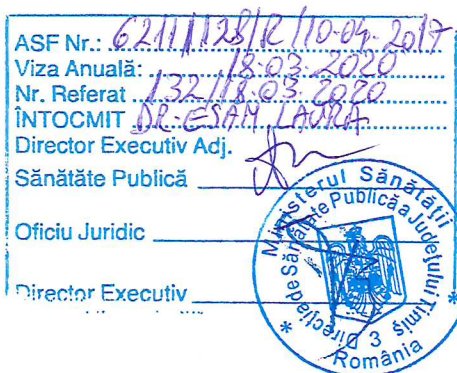 ASF Nr.: 6211/128/R/10-04-2017
Viza Anuală: 18-03-2020
Nr. Referat 132/18.03.2020
ÎNTOCMIT DR. ESAM LAURA
Director Executiv Adj.
Sănătăte Publică
Oficiu Juridic
Director Executiv
Ministerul Sănătății
Direcția de Sănătate Publică a Județului Timiș
3
România